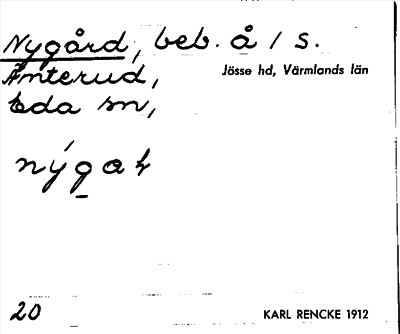 Nygård, beb. å 1 S.
Ånterud,
Jösse hd, Värmlands län
Eda sn,
20
KARL RENCKE 1912